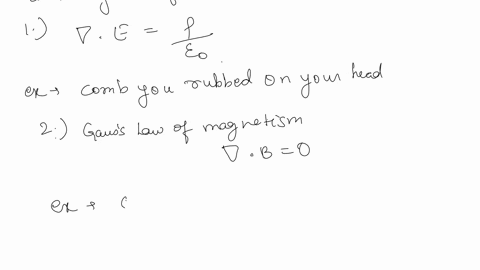 1.) ∇ . E = ρ / ε0
ex → Comb you rubbed on your head
2.) Gaus's Law of magnetism
∇ . B = 0
ex →